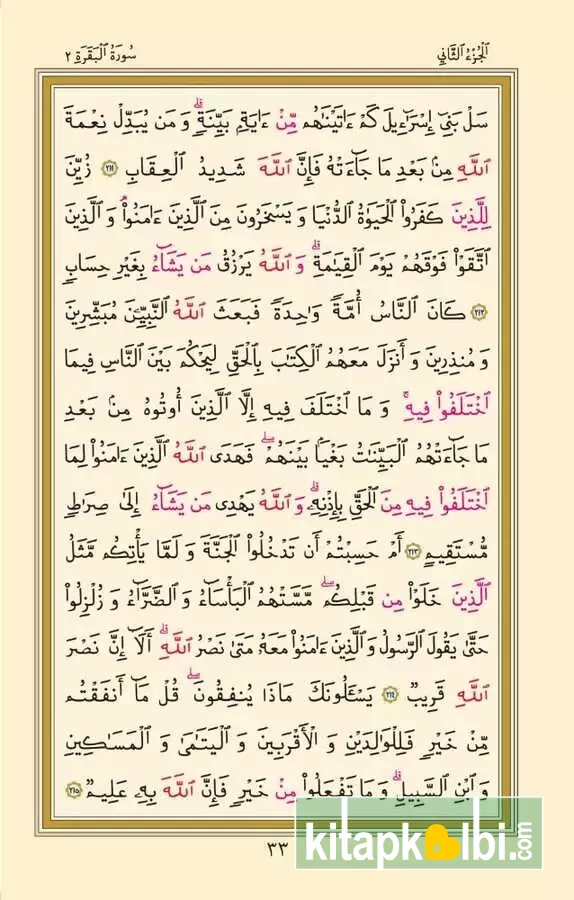 الجزء الثاني
سورة البقرة ٢
سَلْ بَنِىٓ إِسْرَٰٓءِيلَ كَمْ ءَاتَيْنَٰهُم مِّنْ ءَايَةٍۭ بَيِّنَةٍۗ وَ مَن يُبَدِّلْ نِعْمَةَ
ٱللَّهِ مِنۢ بَعْدِ مَا جَآءَتْهُ فَإِنَّ ٱللَّهَ شَدِيدُ ٱلْعِقَابِ ٢١١ زُيِّنَ
لِلَّذِينَ كَفَرُوا۟ ٱلْحَيَوٰةُ ٱلدُّنْيَا وَ يَسْخَرُونَ مِنَ ٱلَّذِينَ ءَامَنُوا۟ۘ وَ ٱلَّذِينَ
ٱتَّقَوْا۟ فَوْقَهُمْ يَوْمَ ٱلْقِيَٰمَةِۗ وَ ٱللَّهُ يَرْزُقُ مَن يَشَآءُ بِغَيْرِ حِسَابٍ
٢١٢ كَانَ ٱلنَّاسُ أُمَّةً وَٰحِدَةً فَبَعَثَ ٱللَّهُ ٱلنَّبِيِّـۧنَ مُبَشِّرِينَ
وَ مُنذِرِينَ وَ أَنزَلَ مَعَهُمُ ٱلْكِتَٰبَ بِٱلْحَقِّ لِيَحْكُمَ بَيْنَ ٱلنَّاسِ فِيمَا
ٱخْتَلَفُوا۟ فِيهِۚ وَ مَا ٱخْتَلَفَ فِيهِ إِلَّا ٱلَّذِينَ أُوتُوهُ مِنۢ بَعْدِ
مَا جَآءَتْهُمُ ٱلْبَيِّنَٰتُ بَغْيًۢا بَيْنَهُمْۖ فَهَدَى ٱللَّهُ ٱلَّذِينَ ءَامَنُوا۟ لِمَا
ٱخْتَلَفُوا۟ فِيهِ مِنَ ٱلْحَقِّ بِإِذْنِهِۦۗ وَ ٱللَّهُ يَهْدِى مَن يَشَآءُ إِلَىٰ صِرَٰطٍ
مُّسْتَقِيمٍ ٢١٣ أَمْ حَسِبْتُمْ أَن تَدْخُلُوا۟ ٱلْجَنَّةَ وَ لَمَّا يَأْتِكُم مَّثَلُ
ٱلَّذِينَ خَلَوْا۟ مِن قَبْلِكُمۖ مَّسَّتْهُمُ ٱلْبَأْسَآءُ وَ ٱلضَّرَّآءُ وَ زُلْزِلُوا۟
حَتَّىٰ يَقُولَ ٱلرَّسُولُ وَ ٱلَّذِينَ ءَامَنُوا۟ مَعَهُۥ مَتَىٰ نَصْرُ ٱللَّهِۗ أَلَآ إِنَّ نَصْرَ
ٱللَّهِ قَرِيبٌ ٢١٤ يَسْـَٔلُونَكَ مَاذَا يُنفِقُونَۖ قُلْ مَآ أَنفَقْتُم
مِّنْ خَيْرٍ فَلِلْوَٰلِدَيْنِ وَ ٱلْأَقْرَبِينَ وَ ٱلْيَتَٰمَىٰ وَ ٱلْمَسَٰكِينِ
وَ ٱبْنِ ٱلسَّبِيلِۗ وَ مَا تَفْعَلُوا۟ مِنْ خَيْرٍ فَإِنَّ ٱللَّهَ بِهِۦ عَلِيمٌ ٢١٥
٣٣
kitapkalbi.com